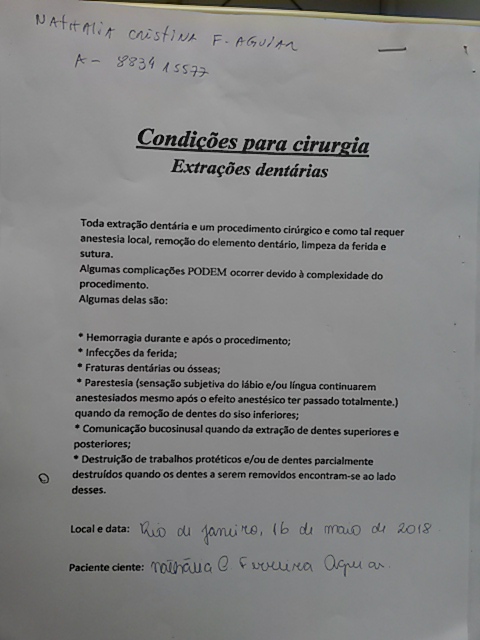 NATHALIA CRISTINA F. AGUIAR
A- 883415577
Condições para cirurgia
Extrações dentárias
Toda extração dentária e um procedimento cirúrgico e como tal requer
anestesia local, remoção do elemento dentário, limpeza da ferida e
sutura.
Algumas complicações PODEM ocorrer devido à complexidade do
procedimento.
Algumas delas são:
* Hemorragia durante e após o procedimento;
* Infecções da ferida;
* Fraturas dentárias ou ósseas;
* Parestesia (sensação subjetiva do lábio e/ou língua continuarem
anestesiados mesmo após o efeito anestésico ter passado totalmente.)
quando da remoção de dentes do siso inferiores;
* Comunicação bucosinusal quando da extração de dentes superiores e
posteriores;
* Destruição de trabalhos protéticos e/ou de dentes parcialmente
destruídos quando os dentes a serem removidos encontram-se ao lado
desses.
Local e data: Rio de janeiro, 16 de maio de 2018.
Paciente ciente: Nathália C Ferreira Aguiar.